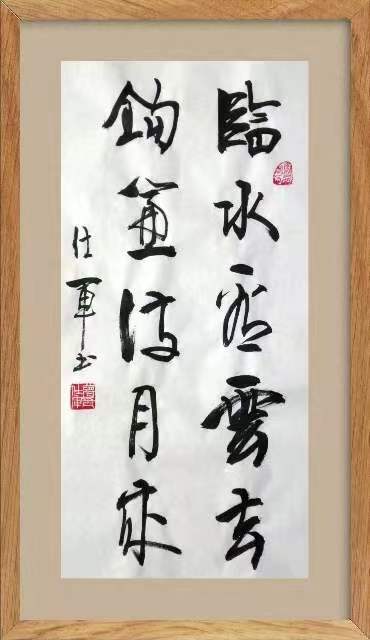 臨水看雲去
鉤簾待月來
仕軍书